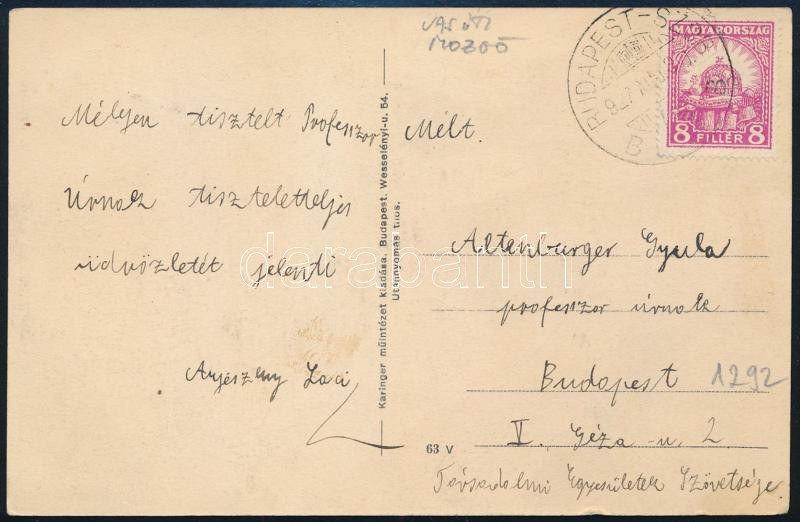 VASÚTI
MOZGÓ
Mélyen tisztelt Professzor
Úrnak tiszteletteljes
üdvözletét jelenti
Laci
Karinger műintézet kiadása. Budapest. Wesselényi-u. 54.
Utánnyomás tilos.
BUDAPEST-
B
MAGYARORSZÁG
8 FILLÉR 8
Mélt.
Altenburger Gyula
professzor úrnak
Budapest
1292
V. Géza-u. 2
Társadalmi Egyesületek Szövetsége.
63 V
darabanth